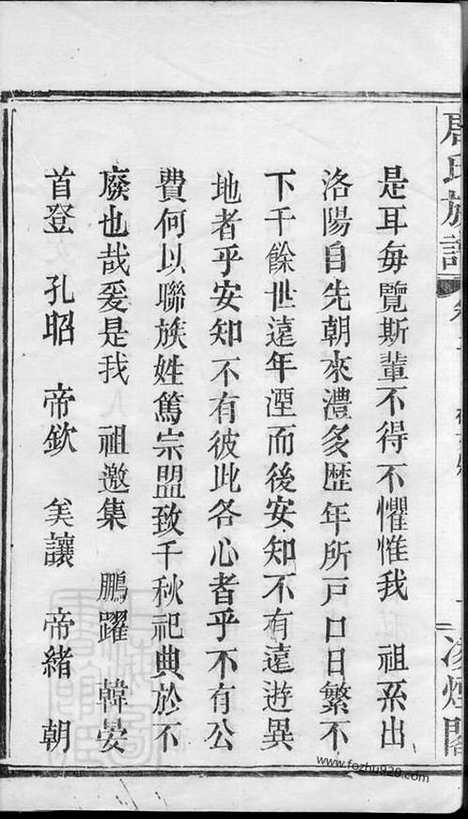 是耳每覽斯輩不得不懼惟我　祖系出
洛陽自先朝來澧多歷年所戶口日繁不
下千餘世遠年湮而後安知不有遠遊異
地者乎安知不有彼此各心者乎不有公
費何以聯族姓篤宗盟致千秋祀典於不
廢也哉爰是我　祖邀集　鵬躍　韓晏
首登　孔昭　帝欽　美讓　帝緒　朝
氏族譜
凌煙閣
www.fozhu920.com